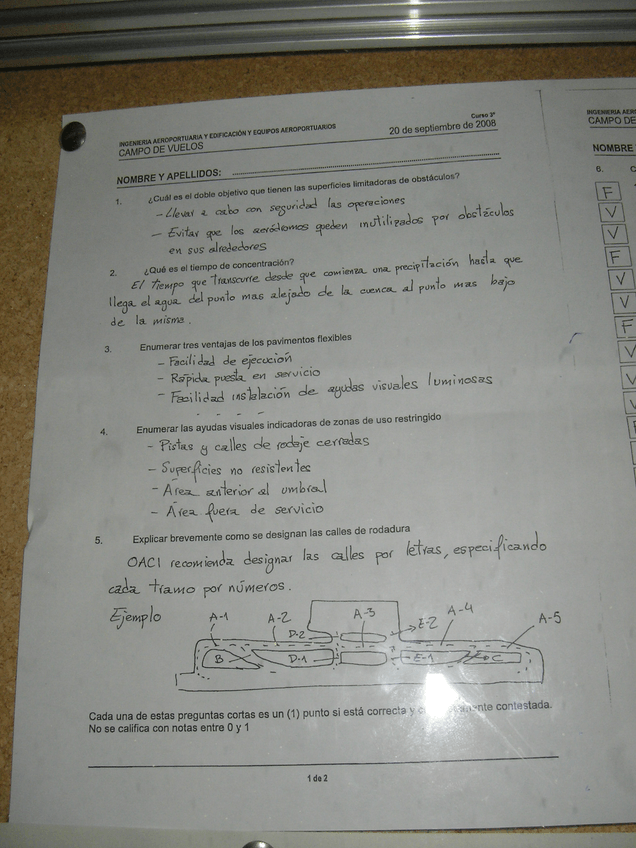 INGENIERIA AEROPORTUARIA Y EDIFICACIÓN Y EQUIPOS AEROPORTUARIOS
Curso 3º
CAMPO DE VUELOS
20 de septiembre de 2008
NOMBRE Y APELLIDOS:
1. ¿Cuál es el doble objetivo que tienen las superficies limitadoras de obstáculos?
- Llevar a cabo con seguridad las operaciones
- Evitar que los aeródromos queden inutilizados por obstáculos
en sus alrededores
2. ¿Qué es el tiempo de concentración?
El tiempo que transcurre desde que comienza una precipitación hasta que
llega el agua del punto mas alejado de la cuenca al punto mas bajo
de la misma.
3. Enumerar tres ventajas de los pavimentos flexibles
- Facilidad de ejecución
- Rápida puesta en servicio
- Facilidad instalación de ayudas visuales luminosas
- - - -
4. Enumerar las ayudas visuales indicadoras de zonas de uso restringido
- Pistas y calles de rodaje cerradas
- Superficies no resistentes
- Área anterior al umbral
- Área fuera de servicio
5. Explicar brevemente como se designan las calles de rodadura
OACI recomienda designar las calles por letras, especificando
cada tramo por números.
Ejemplo
A-1 A-2 A-3 A-4 A-5
D-2 E-2
B D-1 E-1 C
Cada una de estas preguntas cortas es un (1) punto si está correcta y contestada.
No se califica con notas entre 0 y 1
1 de 2
INGENIERIA AER
CAMPO DE
NOMBRE
6. C
F
V
V
F
V
V
F
V
V
V